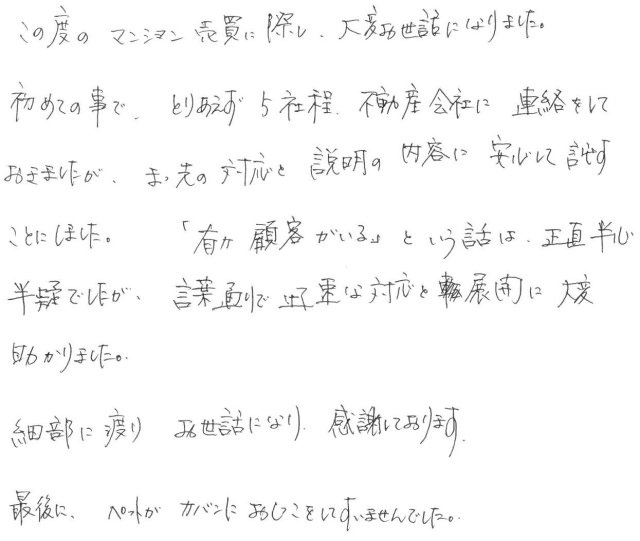 この度の マンション 売買に際し、大変お世話になりました。
初めての事で、とりあえず 5社程、不動産会社に 連絡をして
おきましたが、まっ先の対応と 説明の 内容に 安心して 託す
ことにしました。 「有力 顧客がいる」という話は、正直半心
半疑でしたが、言葉通りで 丁寧な対応と 展開に 大変
助かりました。
細部に渡り お世話になり、感謝しております。
最後に、ペットが カバンに おしっこをしてすいませんでした。